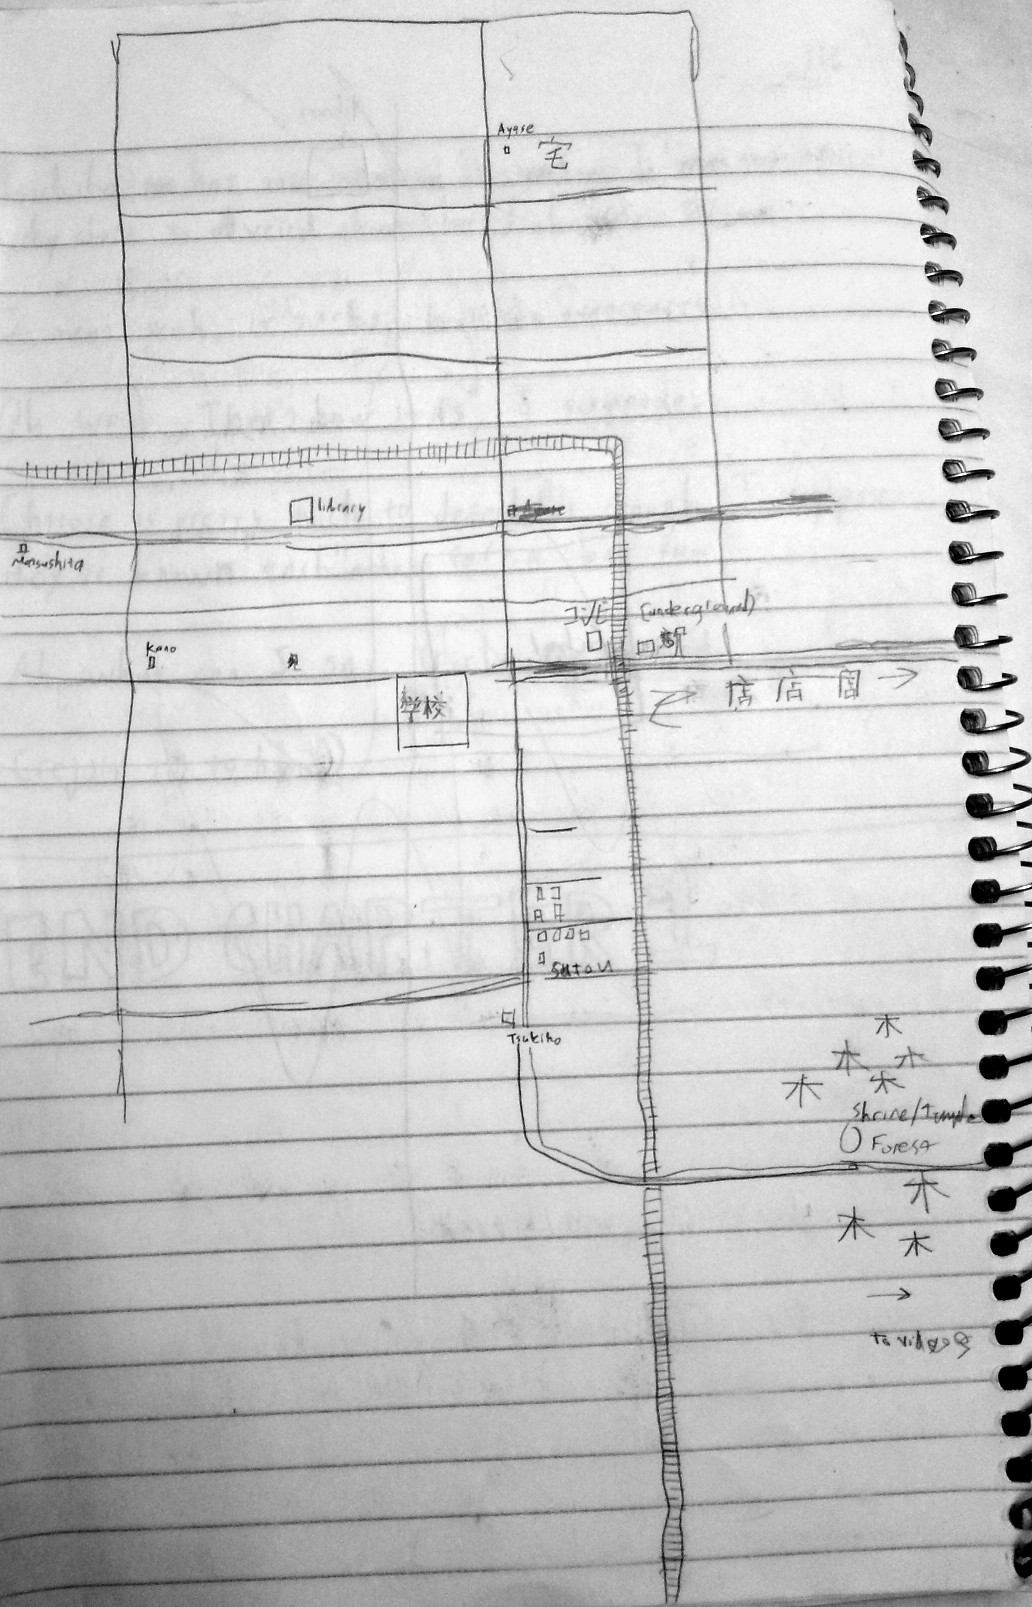 Ayase
宅
library
Ayase
Matsushita
コンビ
(underground)
駅
Kano
学校
店 店 店
Satou
Tsukiho
木
木 木
木 木
Shrine/Temple
Forest
木
木 木
to village